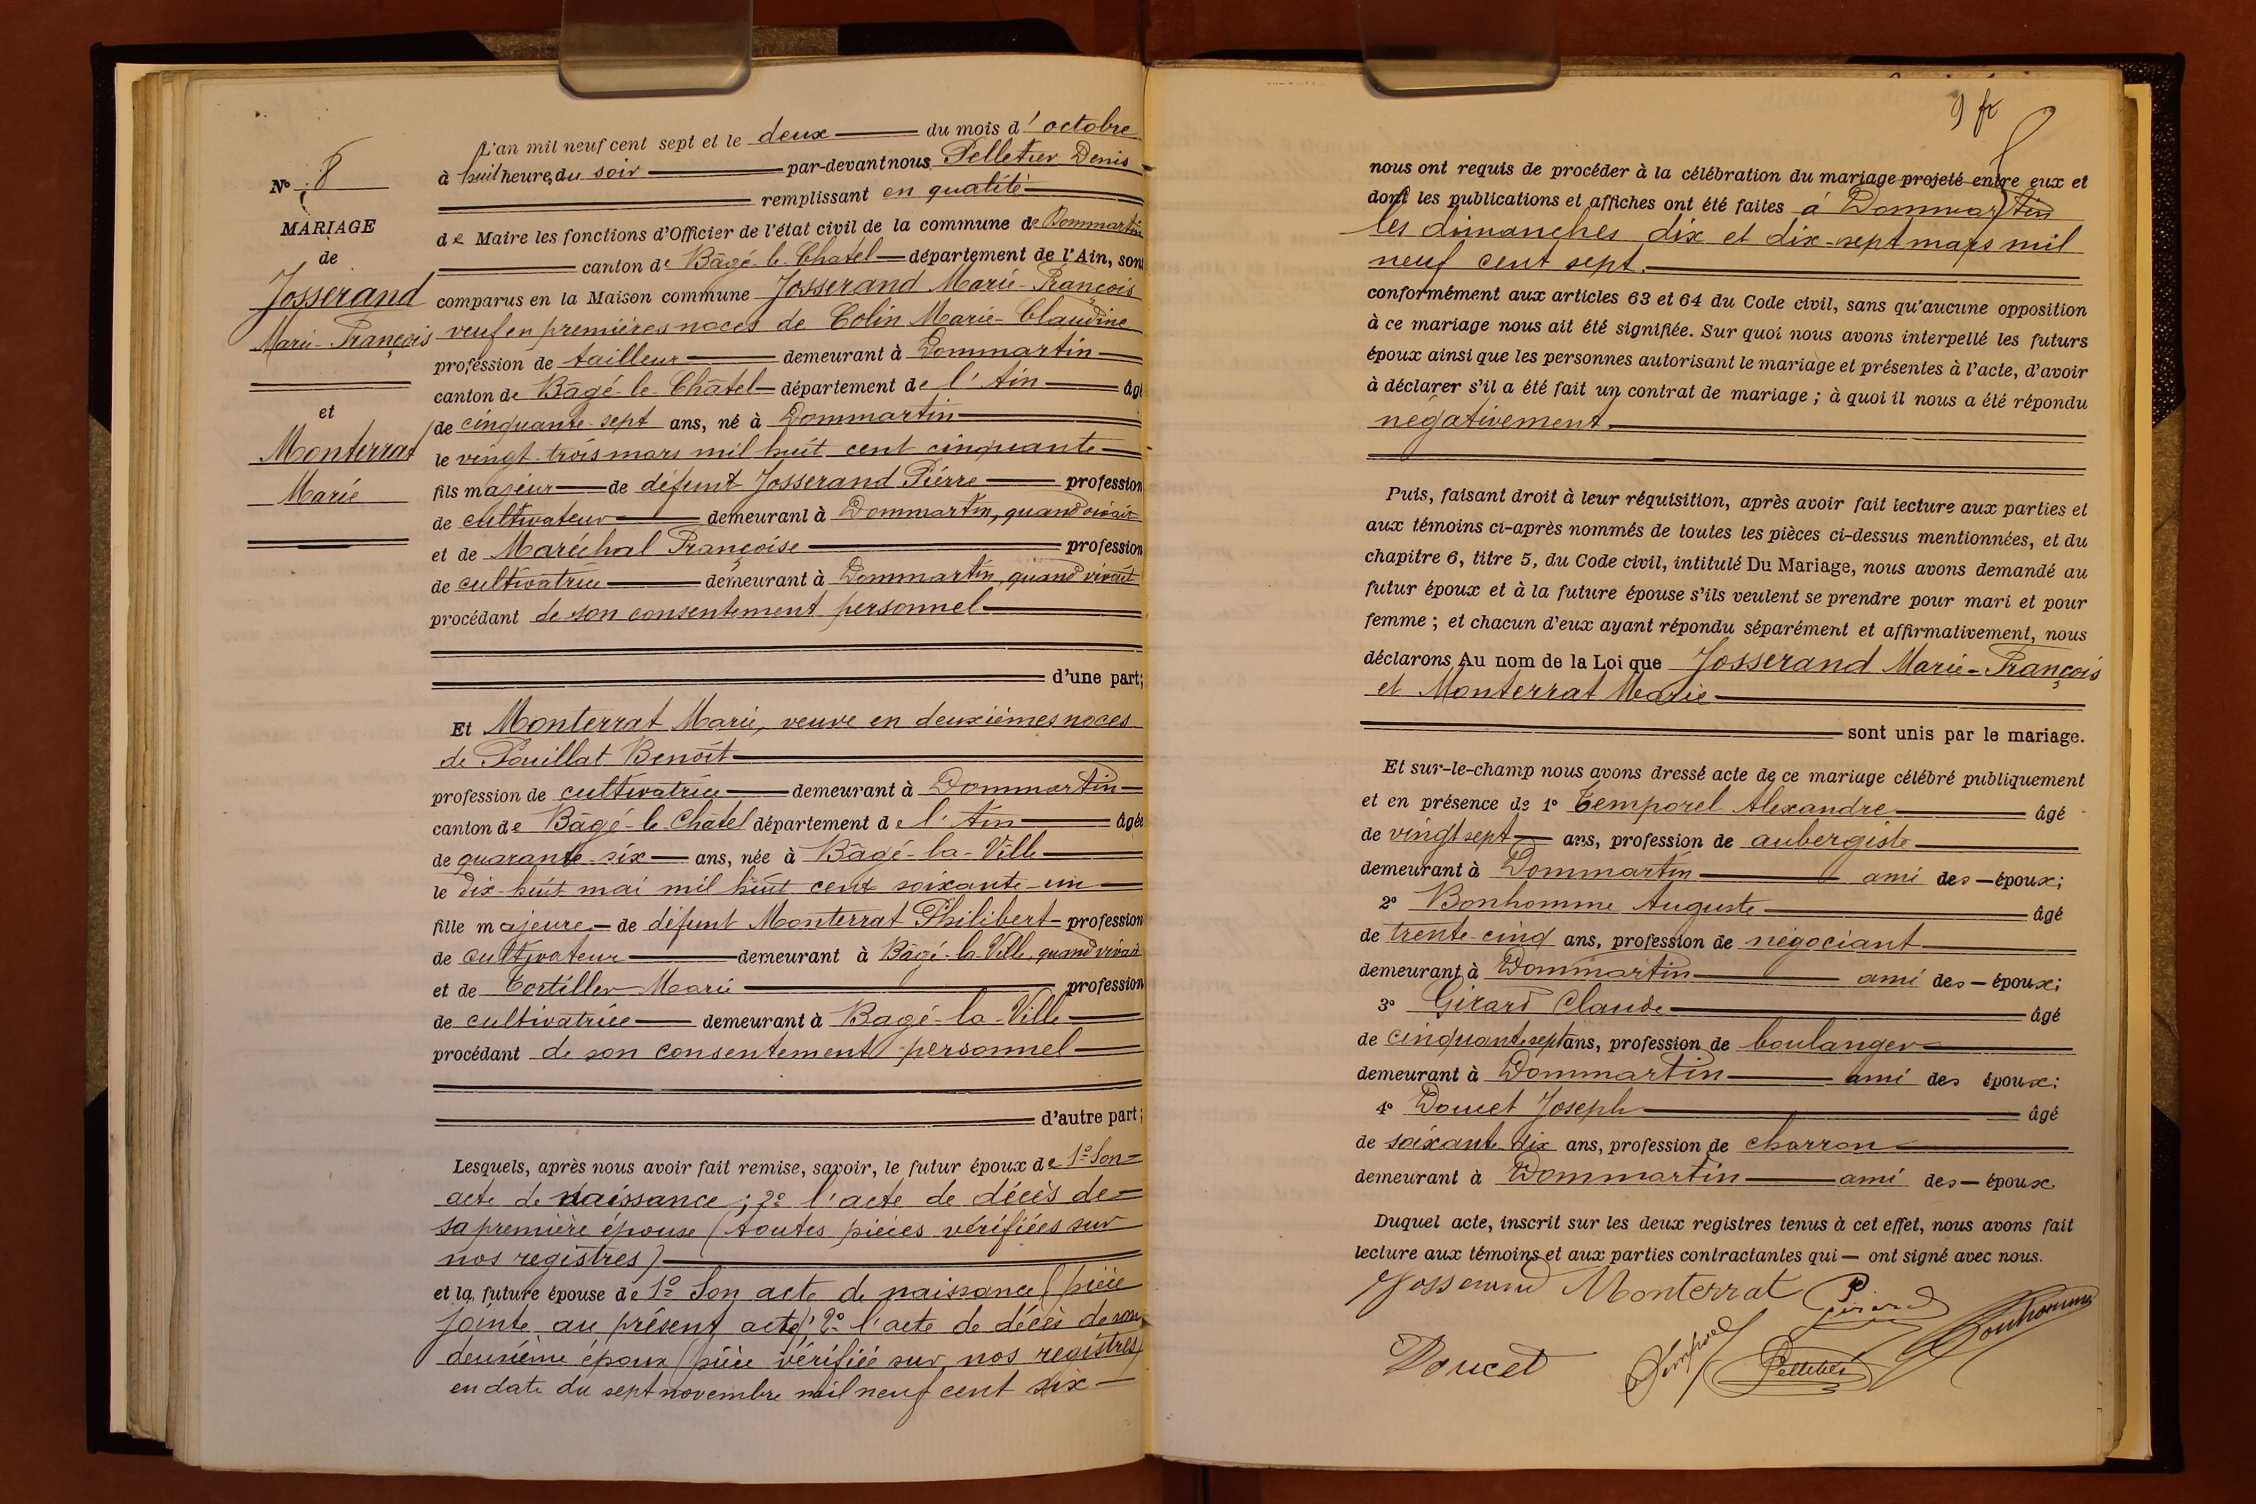 N° 8
MARIAGE
de
Josserand
Marie-François
et
Monterrat
Marie
L'an mil neuf cent sept et le deux du mois d'octobre
à huit heure, du soir par-devant nous Pelletier Denis
remplissant en qualité
de Maire les fonctions d'Officier de l'état civil de la commune de Dommartin
canton de Bâgé-le-Chatel département de l'Ain, sont
comparus en la Maison commune Josserand Marie-François
veuf en premières noces de Colin Marie-Claudine
profession de tailleur demeurant à Dommartin
canton de Bâgé-le-Châtel département de l'Ain âgé
de cinquante-sept ans, né à Dommartin
le vingt-trois mars mil huit cent cinquante
fils majeur de défunt Josserand Pierre profession
de cultivateur demeurant à Dommartin, quand vivait
et de Maréchal Françoise profession
de cultivatrice demeurant à Dommartin, quand vivait
procédant de son consentement personnel
d'une part;
Et Monterrat Marie, veuve en deuxièmes noces
de Pouillat Benoît
profession de cultivatrice demeurant à Dommartin
canton de Bâgé-le-Châtel département de l'Ain âgée
de quarante-six ans, née à Bâgé-la-Ville
le dix-huit mai mil huit cent soixante-un
fille majeure de défunt Monterrat Philibert profession
de cultivateur demeurant à Bâgé-la-Ville, quand vivait
et de Tortiller Marie profession
de cultivatrice demeurant à Bagé-la-Ville
procédant de son consentement personnel
d'autre part;
Lesquels, après nous avoir fait remise, savoir, le futur époux de 1° Son
acte de naissance; 2° l'acte de décès de
sa première épouse (toutes pièces vérifiées sur
nos registres)
et la future épouse de 1° Son acte de naissance (pièce
jointe au présent acte) 2° l'acte de décès de son
deuxième époux (pièce vérifiée sur nos registres)
en date du sept novembre mil neuf cent six
9 fc
nous ont requis de procéder à la célébration du mariage projeté entre eux et
dont les publications et affiches ont été faites à Dommartin
les dimanches dix et dix-sept mars mil
neuf cent sept.
conformément aux articles 63 et 64 du Code civil, sans qu'aucune opposition
à ce mariage nous ait été signifiée. Sur quoi nous avons interpellé les futurs
époux ainsi que les personnes autorisant le mariage et présentes à l'acte, d'avoir
à déclarer s'il a été fait un contrat de mariage; à quoi il nous a été répondu
négativement
Puis, faisant droit à leur réquisition, après avoir fait lecture aux parties et
aux témoins ci-après nommés de toutes les pièces ci-dessus mentionnées, et du
chapitre 6, titre 5, du Code civil, intitulé Du Mariage, nous avons demandé au
futur époux et à la future épouse s'ils veulent se prendre pour mari et pour
femme; et chacun d'eux ayant répondu séparément et affirmativement, nous
déclarons Au nom de la Loi que Josserand Marie-François
et Monterrat Marie
sont unis par le mariage.
Et sur-le-champ nous avons dressé acte de ce mariage célébré publiquement
et en présence de 1° Temporel Alexandre âgé
de vingt sept ans, profession de aubergiste
demeurant à Dommartin ami des époux;
2° Bonhomme Auguste âgé
de trente-cinq ans, profession de négociant
demeurant à Dommartin ami des époux;
3° Girard Claude âgé
de cinquante sept ans, profession de boulanger
demeurant à Dommartin ami des époux;
4° Doucet Joseph âgé
de soixante dix ans, profession de charron
demeurant à Dommartin ami des époux
Duquel acte, inscrit sur les deux registres tenus à cet effet, nous avons fait
lecture aux témoins et aux parties contractantes qui ont signé avec nous.
Josserand Monterrat Girard
Doucet Temporel Pelletier Bonhomme